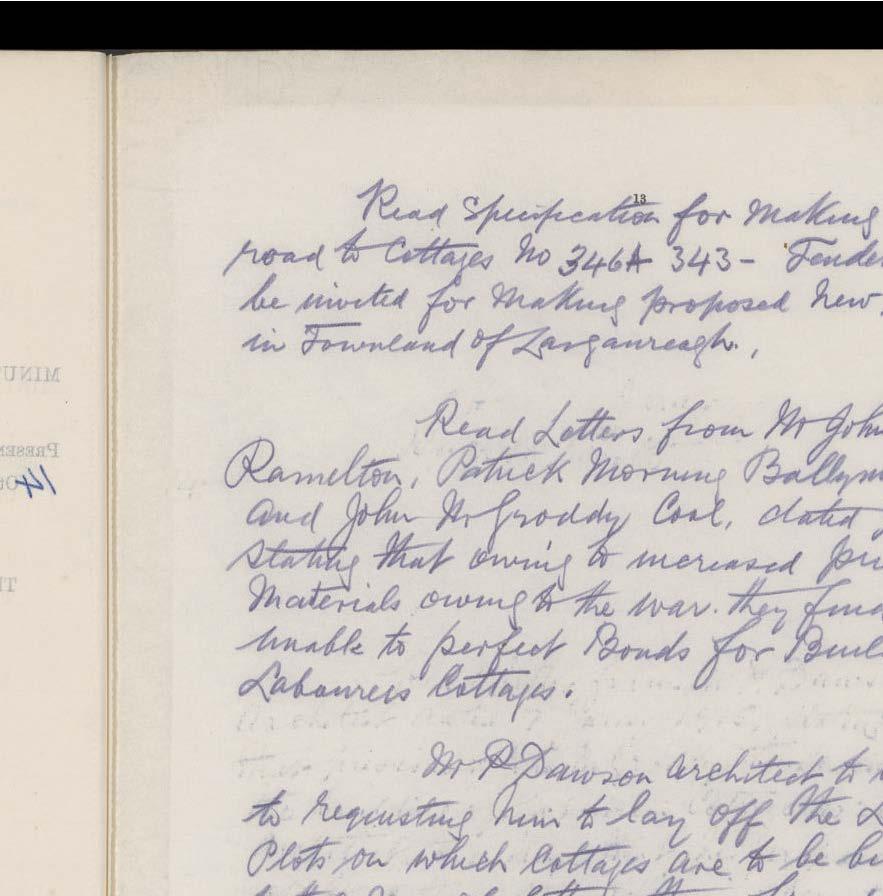 MINU
PRESEN
14
TH
13
Read Specification for Making
road to Cottages No 346A 343 - Tende
be invited for Making proposed New
in Townland of Largaureagh.,
Read Letters from Mr John
Ramelton, Patrick Morning Ballym
and John McGroddy Coal, dated
Stating that owing to increased pri
Materials owing to the war. they find
unable to perfect Bonds for Buil
Labourers Cottages.
Mr P Dawson Architect to
to requesting him to lay off the L
Plots on which Cottages are to be bu